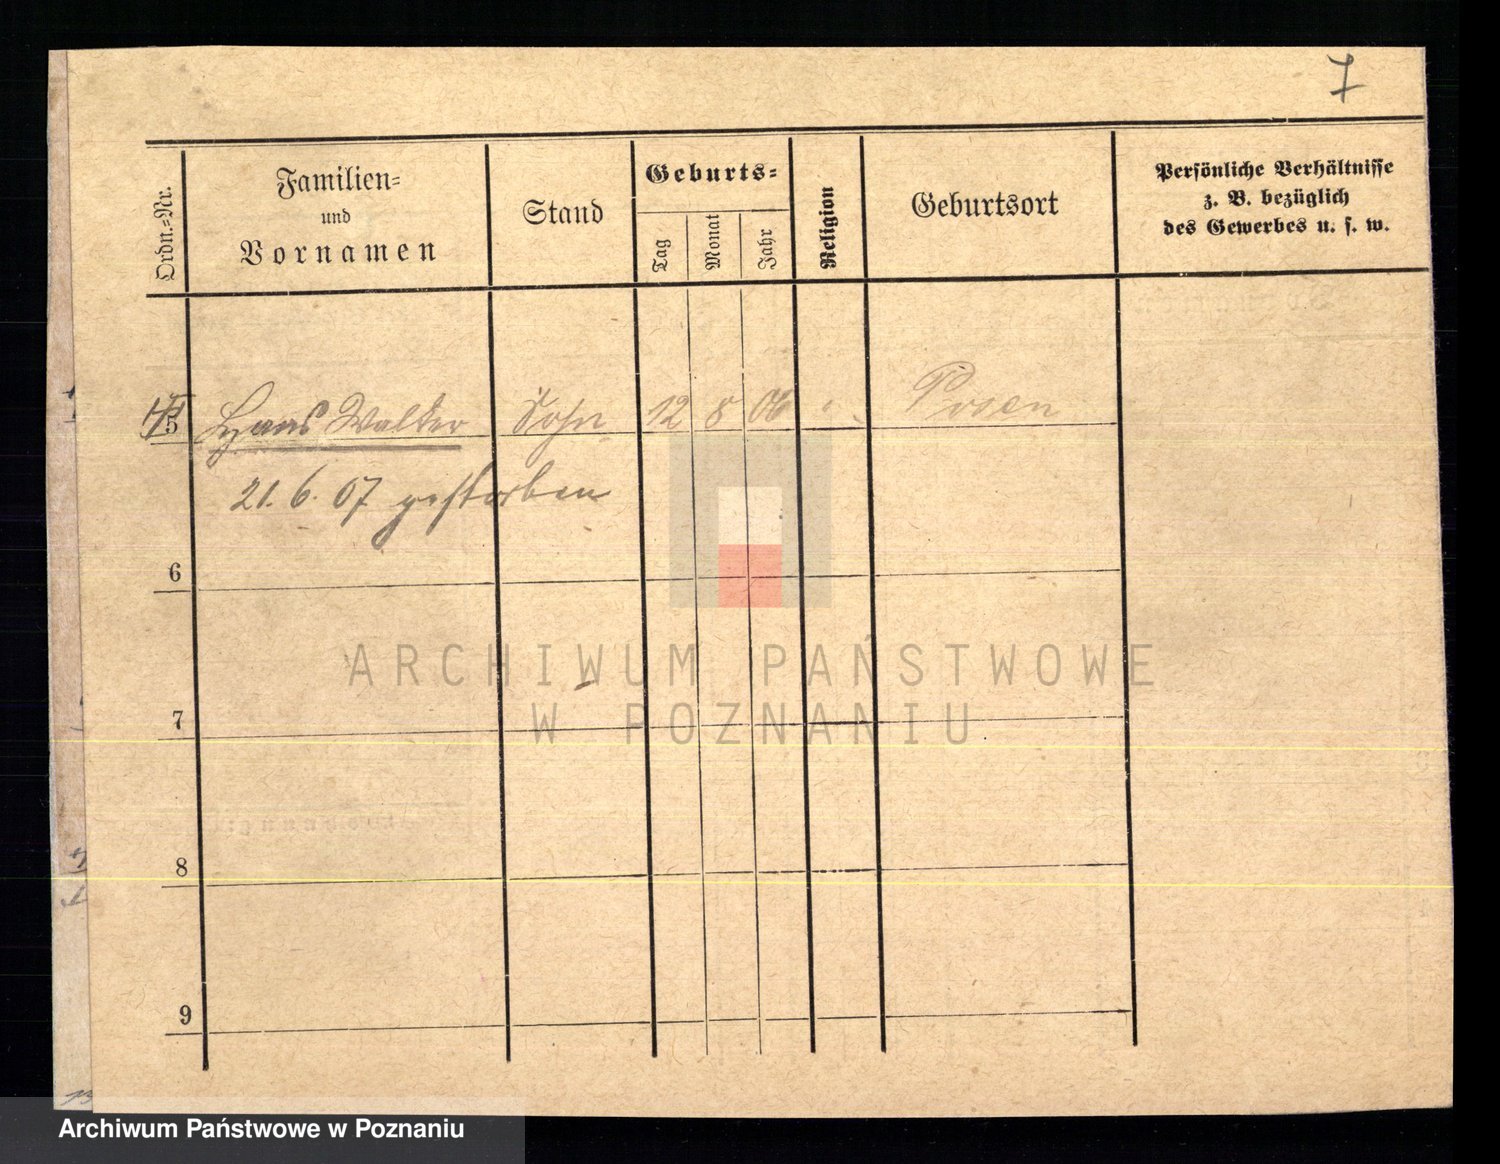 7
Ordn.-Nr.
Familien-
und
Vornamen
Stand
Geburts-
Tag
Monat
Jahr
Religion
Geburtsort
Persönliche Verhältnisse
z. B. bezüglich
des Gewerbes u. s. w.
5 Hans Walter Sohn 12 8 06 Posen
21. 6. 07 gestorben
6
ARCHIWUM PAŃSTWOWE
W POZNANIU
7
8
9
Archiwum Państwowe w Poznaniu